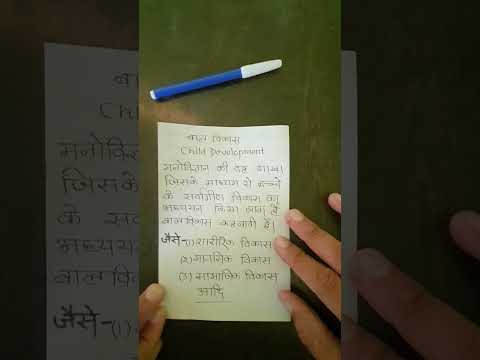 बाल विकास
Child Development
मनोविज्ञान की वह शाखा
जिसके माध्यम से बच्चे
के सर्वांगीण विकास का
अध्ययन किया जाता है
बालविकास कहलाती है।
जैसे-(1) शारीरिक विकास
(2) मानसिक विकास
(3) सामाजिक विकास
आदि